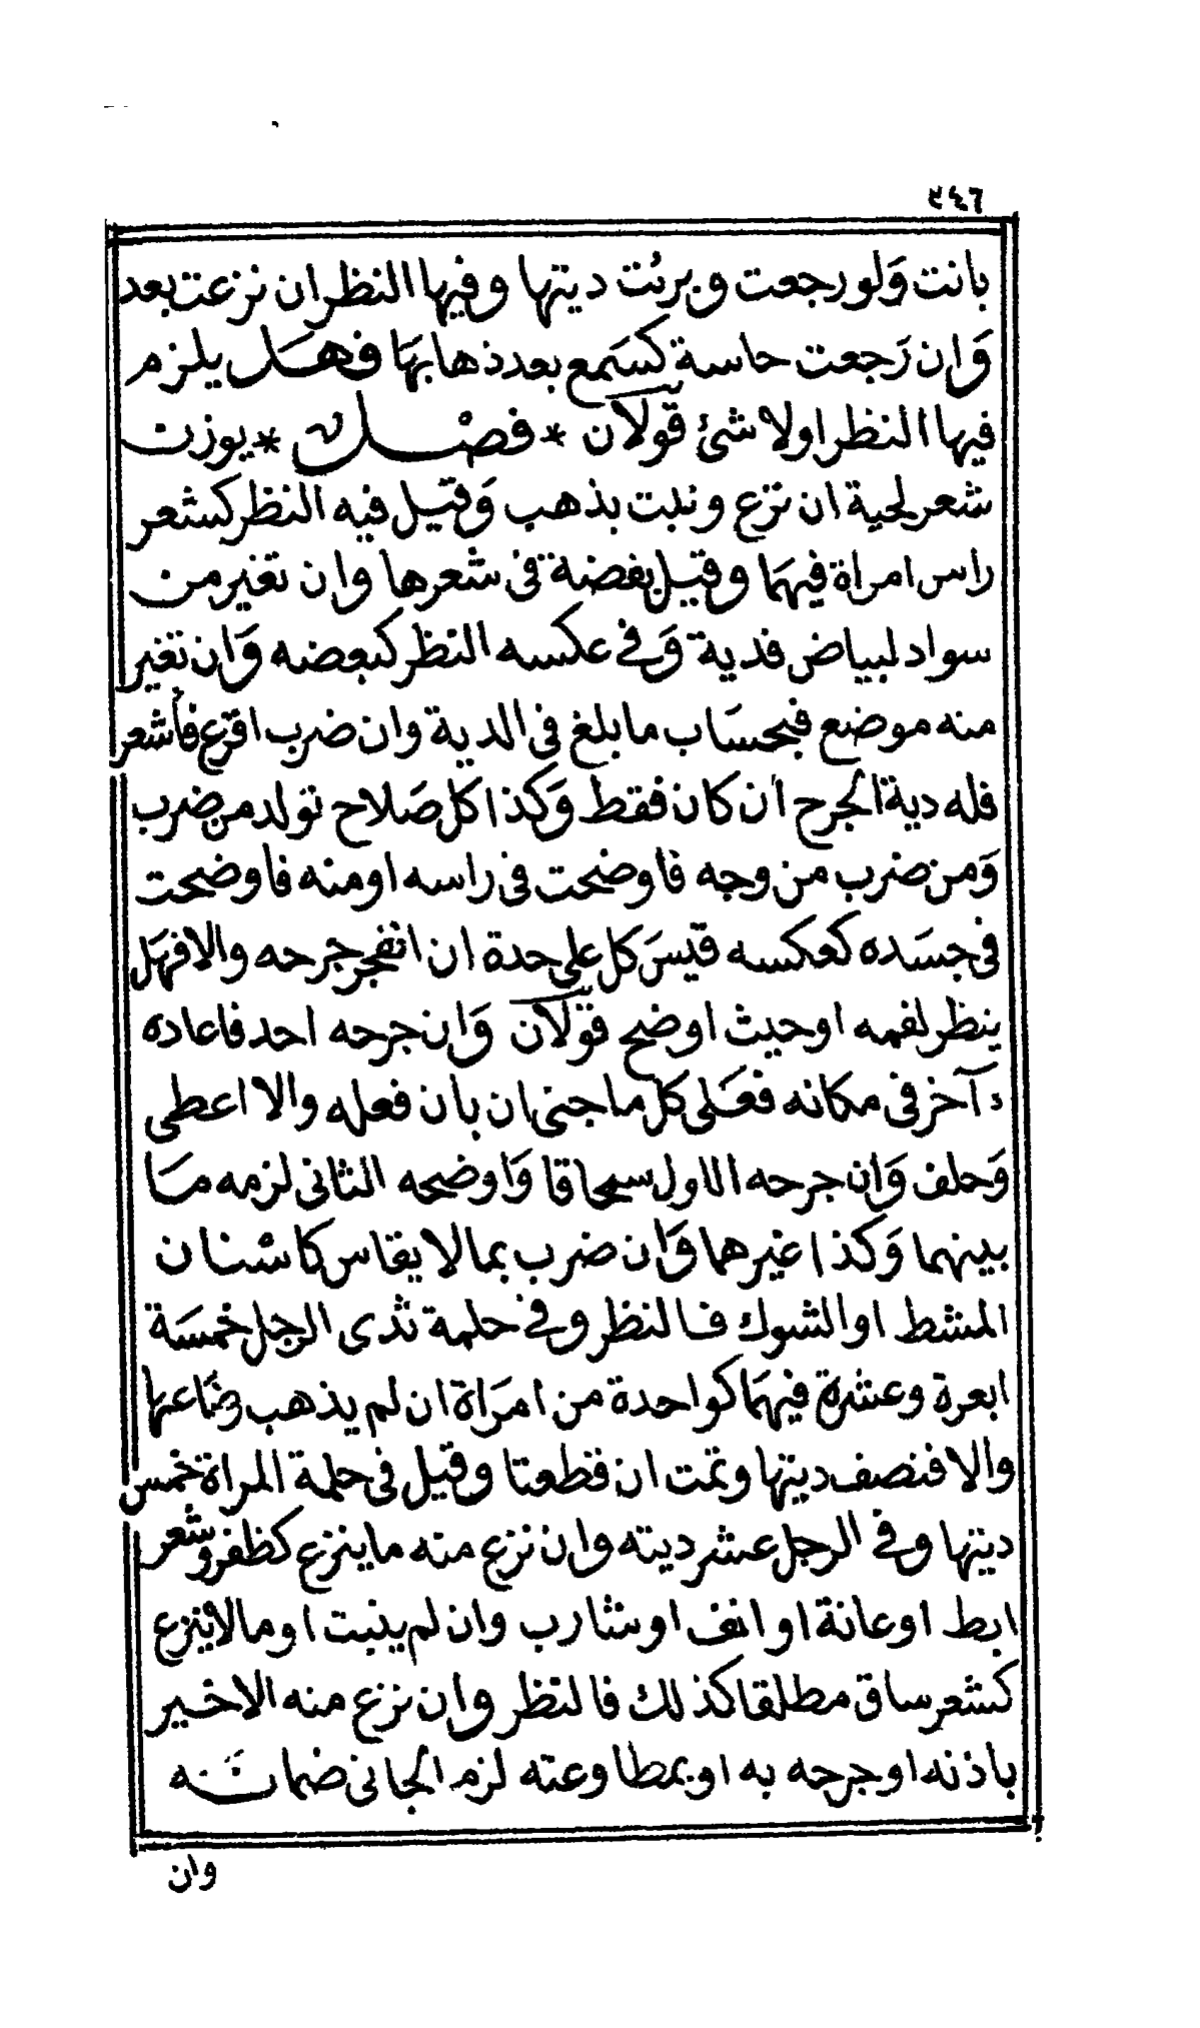 ٥٤٦
بانت وَلو رجعت وبرئت ديتها وفيها النظر ان نزعت بعد
وَان رَجعت حاسة كسَمع بعد ذهابهَا فهَل يلزم
فيها النظر اولا شئ قولان * فصْل * يوزن
شعر لحية ان نزع ونبت بذهب وَقيل فيه النظر كشعر
راس امراة فيهمَا وقيل بفضة فى شعرها وان تغير من
سواد لبياض فدية وَفى عكسه النظر كبعضه وَان تغير
منه موضع فبحسَاب ما بلغ فى الدية وان ضرب اقرع فأشعر
فله دية الجرح ان كان فقط وَكذا كل صَلاح تولد من ضرب
وَمن ضرب من وجه فاوضحت فى راسه او منه فاوضحت
فى جسَده كعكسه قيسَ كل على حدة ان انفجر جرحه والا فهَل
ينظر لفمه او حيث اوضح قولان وَان جرحه احد فاعاده
ءآخر فى مكانه فعَلى كل ما جنى ان بان فعله والا اعطى
وَحلف وَان جرحه الاول سمحاقا وَاوضحه الثانى لزمه مَا
بينهما وَكذا غيرهما وَان ضرب بما لا يقاس كاسنان
المشط او الشوك فالنظر وفى حلمة ثدى الرجل خمسَة
ابعرة وعشرة فيهمَا كواحدة من امرَاة ان لم يذهب رضَاعها
والا فنصف ديتها وتمت ان قطعتا وقيل فى حلمة المراة خمس
ديتها وفى الرجل عشر ديته وان نزع منه ما ينزع كظفر وشعر
ابط او عانة او انف او شارب وان لم ينبت او ما لا ينزع
كشعر ساق مطلقا كذلك فالنظر وان نزع منه الاخير
باذنه او جرحه به او بمطاوعته لزم الجانى ضمانه
وان